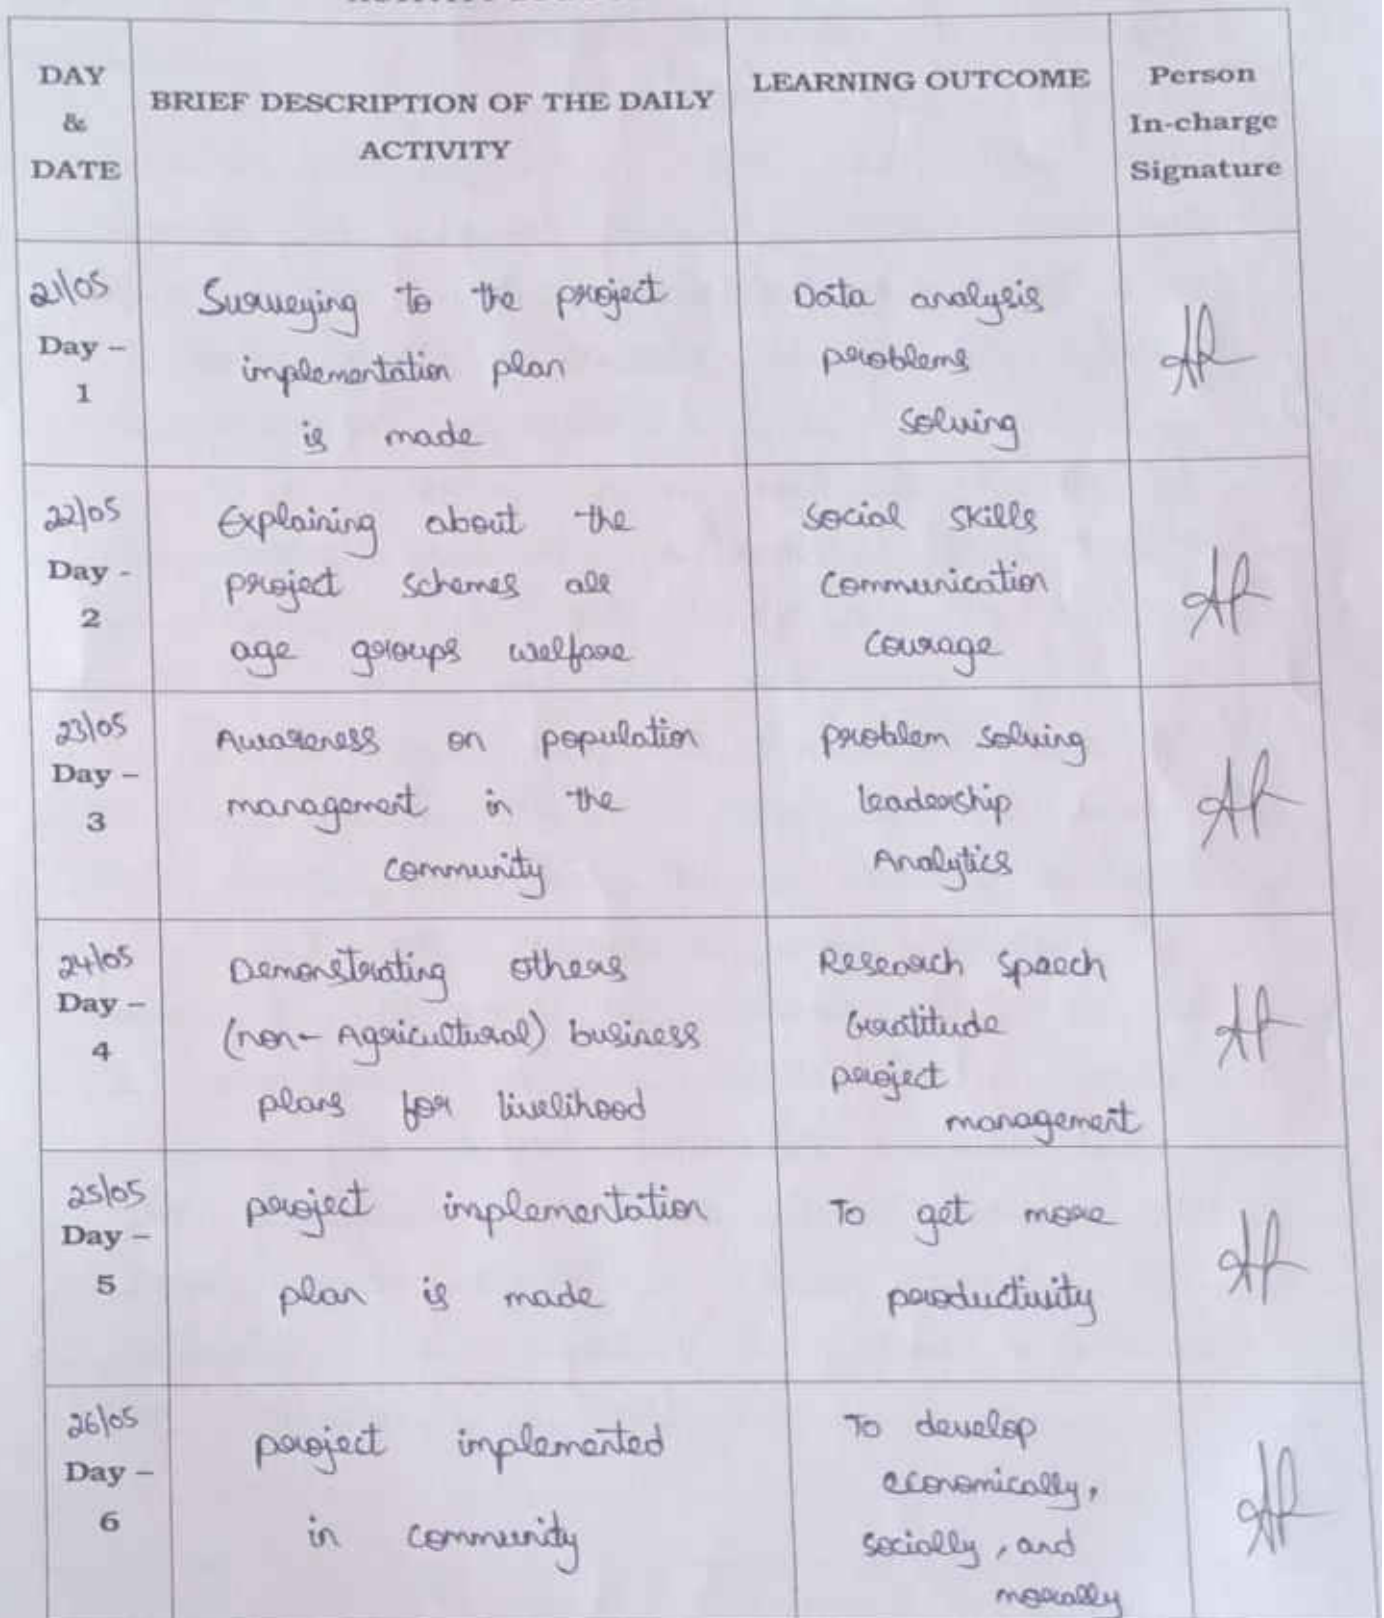 DAY
&
DATE
BRIEF DESCRIPTION OF THE DAILY
ACTIVITY
LEARNING OUTCOME
Person
In-charge
Signature
21/05
Day –
1
Surveying to the project
implementation plan
is made
Data analysis
problems
solving
22/05
Day -
2
Explaining about the
project schemes all
age groups welfare
Social skills
Communication
Courage
23/05
Day –
3
Awareness on population
management in the
community
problem solving
leadership
Analytics
24/05
Day –
4
Demonstrating others
(non- Agricultural) business
plans for livelihood
Research Speech
Gratitude
project
management
25/05
Day –
5
project implementation
plan is made
To get more
productivity
26/05
Day –
6
project implemented
in community
To develop
economically,
socially, and
morally